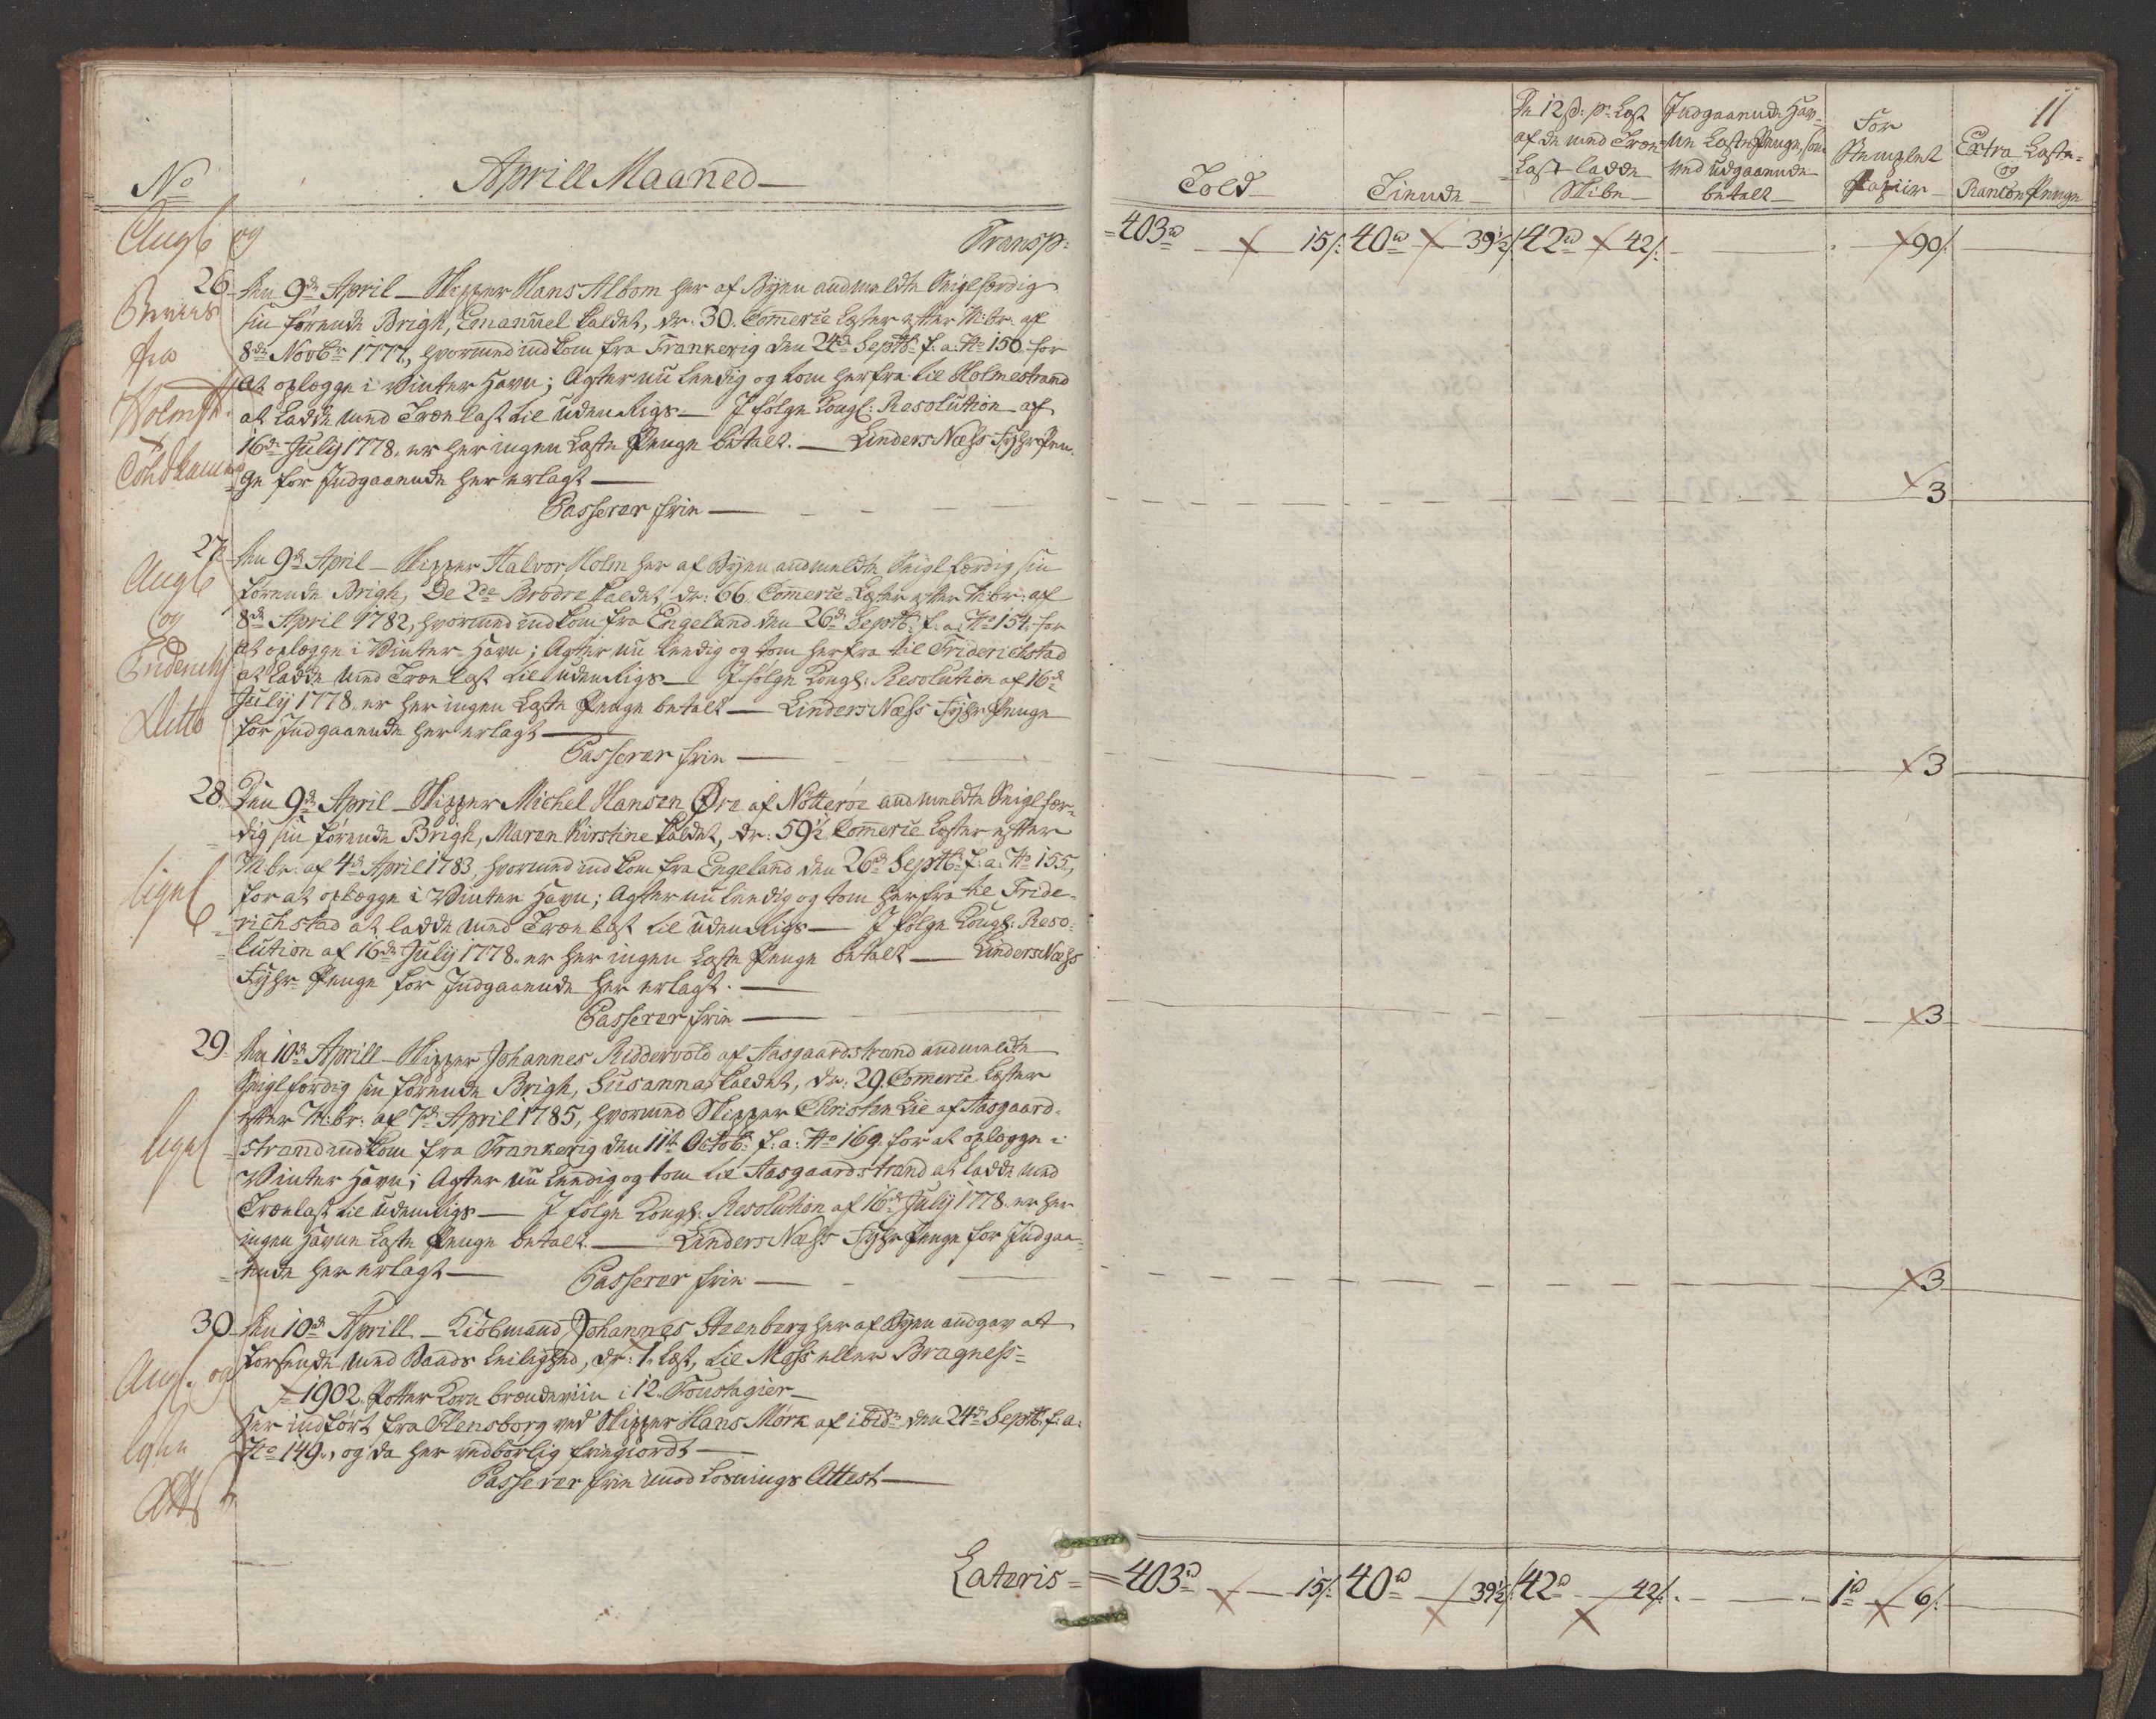 No
Aprill Maaned
Transp:
26. Den 9de April Skipper Hans Albom her af Byen andmeldte Seiglfærdig
sin førende Brigh, Emanuel kaldet, dr: 30. Commerce Læster efter M:br: af
8de Novbr 1777, hvormed indkom fra Frankerig den 24de Septbr f: a: No 150 for
at oplægge i Winter Havn; Agter nu leedig og tom herfra til Holmestrand
at ladde med Træelast til udenRigs. I følge Kongl: Resolution af
16de July 1778. er her ingen Laste Penge betalt. Linders Næss Fyhr Pen-
ge for Indgaaende her erlagt
Passerer frie
27. Den 9de April Skipper Halvor Holm her af Byen andmeldte Seiglfærdig sin
førende Brigh, De 2de Brødre kaldet, dr: 66 Commerce Læster efter M:br: af
8de April 1782, hvormed indkom fra Engeland den 26de Septb: f. a: No 154. for
at oplægge i Winter Havn; Agter nu leedig og tom herfra til Friderichstad
at ladde med Træelast til udenRigs I følge Kongl: Resolution af 16de
July 1778. er her ingen Laste Penge betalt Linders Næss Fyhr Penge
for Indgaaende her erlagt
Passerer frie
28. Den 9de April Skipper Michel Hansen Øre af Nötteröe andmeldte Seiglfær-
dig sin førende Brigh, Maren Kirstine kaldet, dr: 59½ Commerce Læster efter
M:br: af 4de April 1783, hvormed indkom fra Engeland den 26de Septb: f. a: No 155,
for at oplægge i Winter Havn; Agter nu leedig og tom herfra til Fride-
richstad at ladde med Træelast til udenRigs I følge Kongl: Reso-
lution af 16de July 1778. er her ingen Laste Penge betalt Linders Næss
Fyhr Penge for Indgaaende her erlagt.
Passerer frie
29. Den 10de Aprill Skipper Johannes Riddervold af Aasgaardstrand andmeldte
Seiglfærdig sin førende Brigh, Susanna kaldet, dr: 29. Commerce Læster
efter M:br: af 7de April 1785, hvormed Skipper Christen Lie af Aasgaard-
strand indkom fra Frankerig den 11te Octob: f: a: No 169. for at oplægge i
Winter Havn; Agter nu leedig og tom til Aasgaardstrand at ladde med
Træelast til udenRigs I følge Kongl: Resolution af 16de July 1778. er her
ingen Havne Laste Penge betalt. Linders Næss Fyhr Penge for Indgaa-
ende her erlagt Passerer frie
30. Den 10de Aprill Kiöbmand Johannes Steenberg her af Byen andgav at
forsende med Baads Leilighed, dr: 1. Læst, til Moss eller Bragness
1902 Potter Korn brændeviin i 12. Foustagier
Her indført fra Flensborg ved Skipper Hans Mörk af ibid: den 24de Septb: f: a:
No 149., og da her vedbørlig friegiordt
Passerer frie imod Losnings Attest
Lateris
og
fra
Holmst.
og
Ditto
lign
11
Told
Tiende
De 12 s: pr Læst af de med Træe-Last ladde Skibe
Indgaaende Hav-ne Laste Penge, som ved udgaaende betalt
For Stemplet Papiir
Extra Laste- og Rancon Penge
403 15/: 40 39½/: 42 42/: 90/:
3
3
3
3
403 15/: 40 39½/: 42 42/: 1 6/: